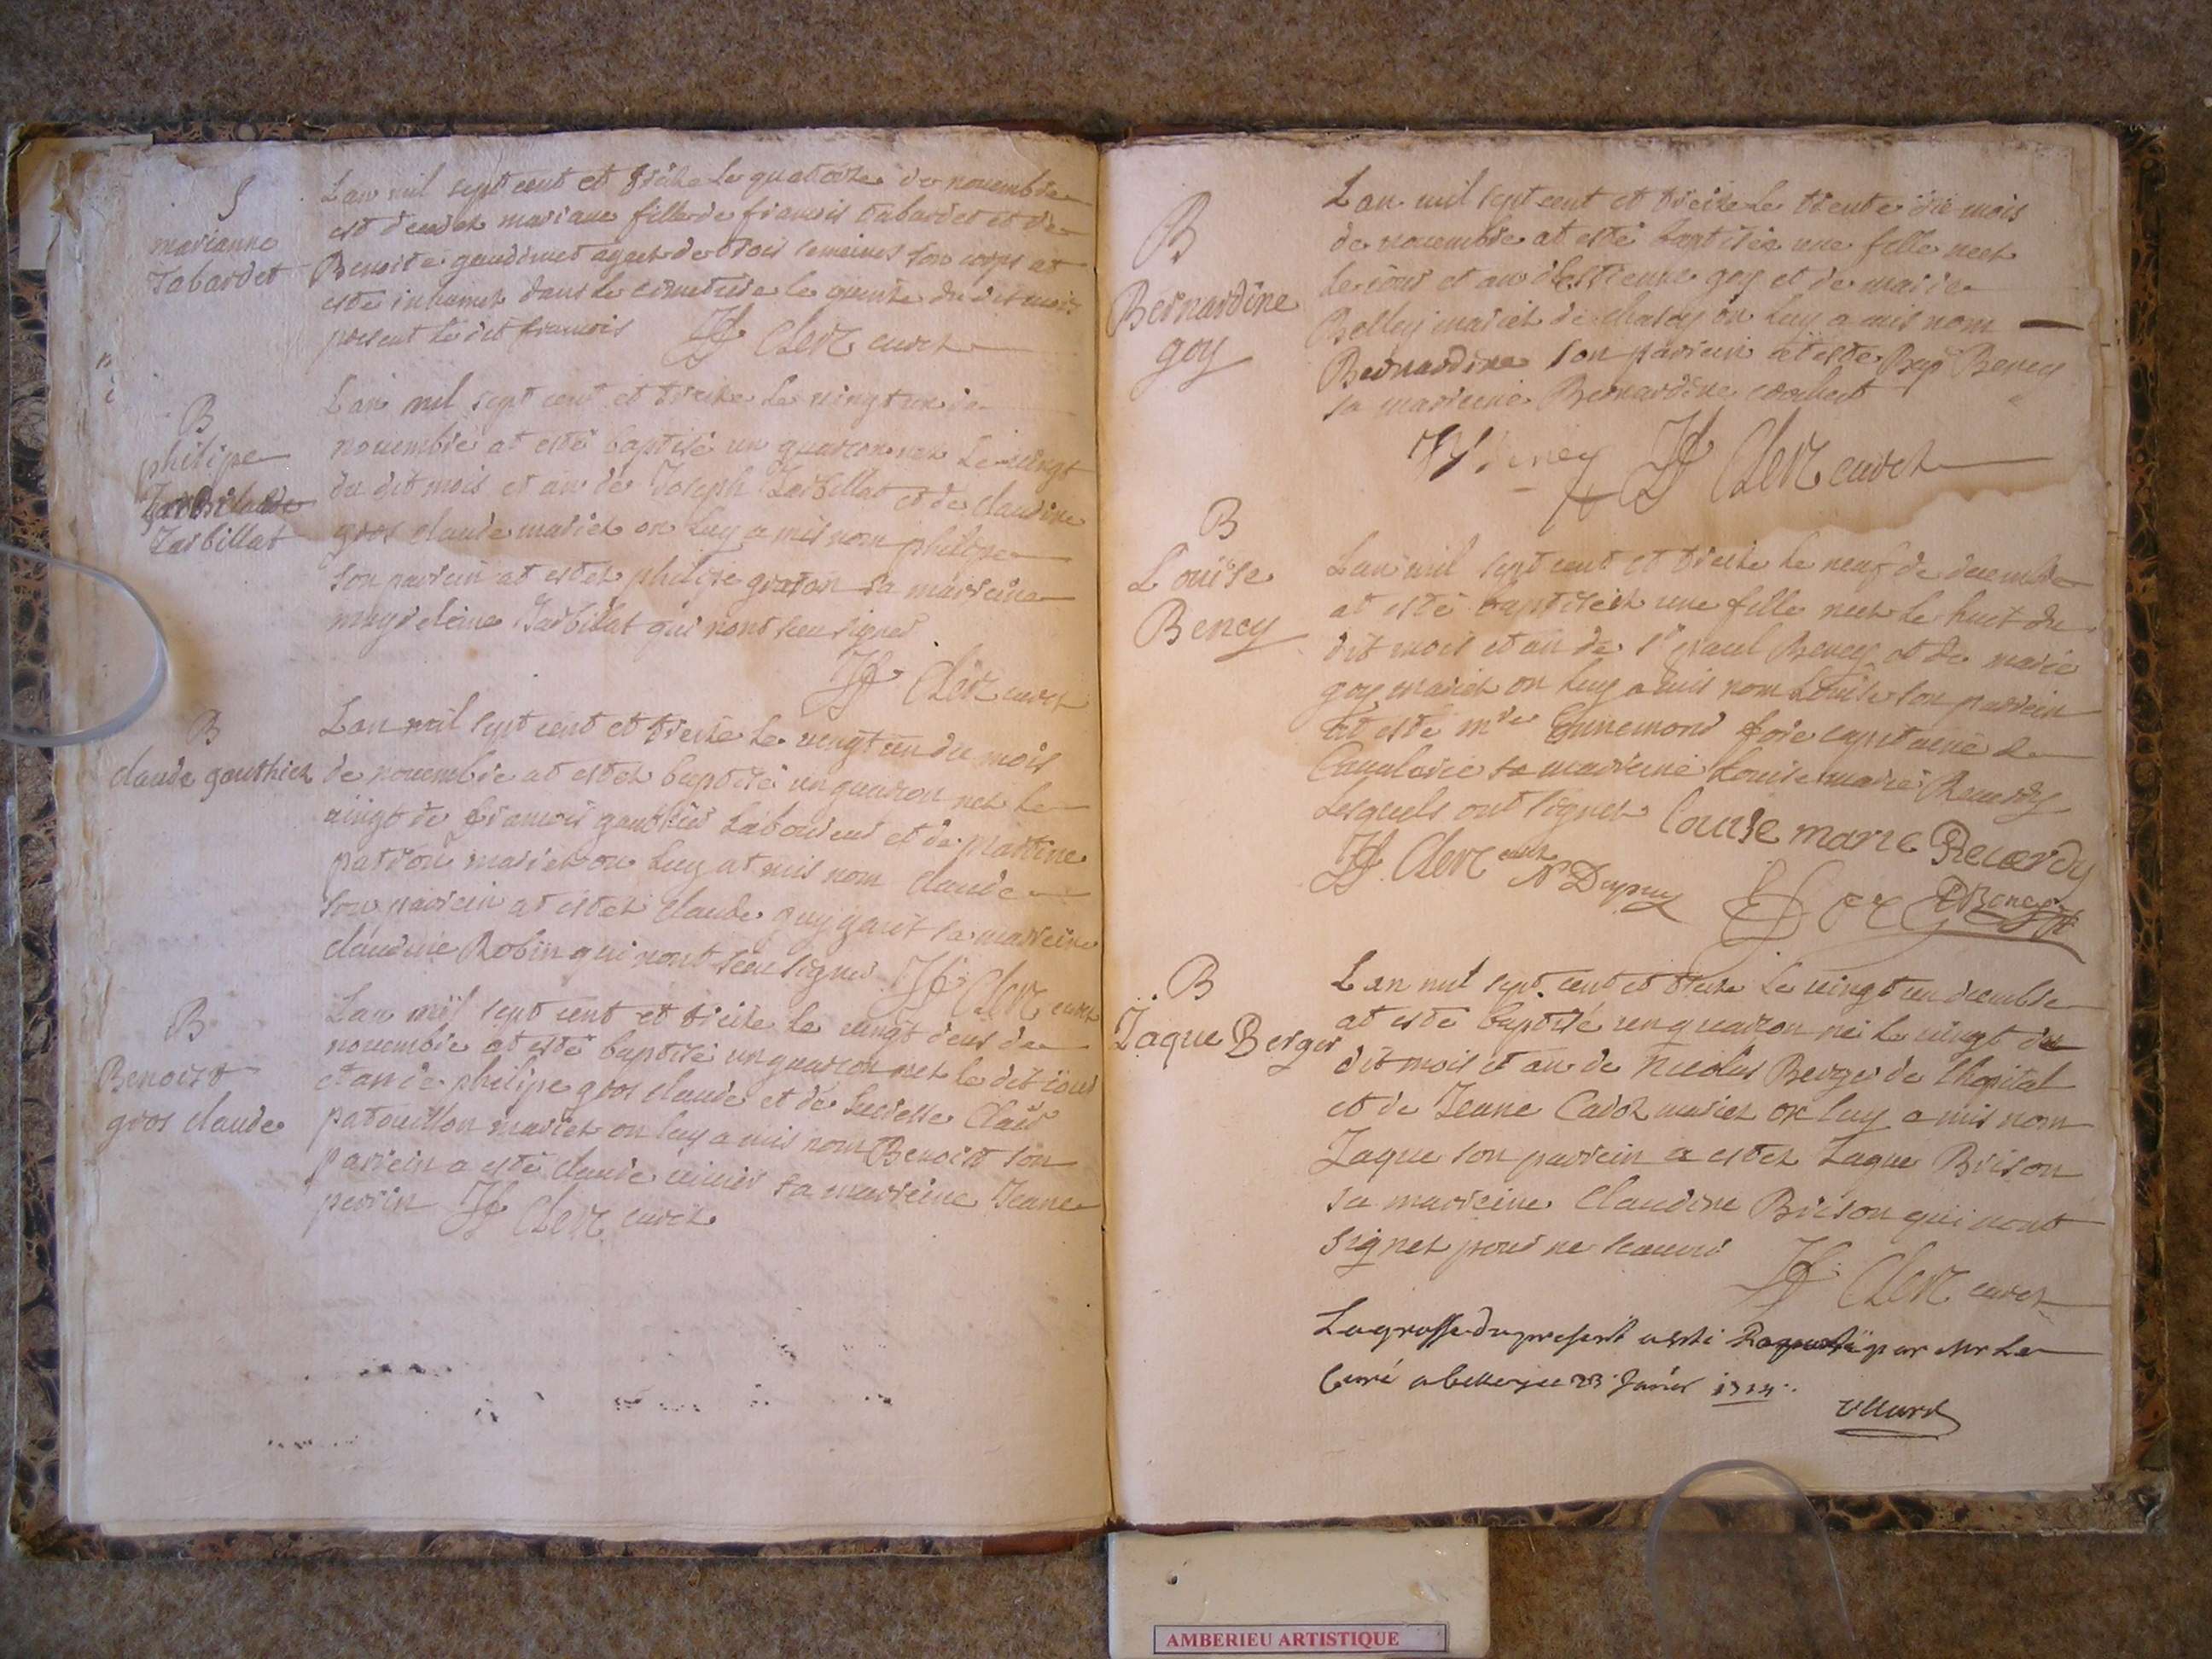 S
marianne
Tabardet
Lan mil sept cent et treize le quatorze de novembre
est decedez mariane fille de francois tabardet et de
Benoite gaudimet agez de trois semaines son corps at
esté inhumez dans le cimetiere le quinze du dit mois
present le dit francois JF Clerc curez
B
philipe
Jarbillat
Lan mil sept cent et treize le vingt un de
novembre at esté baptisé un guarcon nez le vingt
du dit mois et an de Joseph Jarbillat et de claudine
gros claude mariez on luy a mis nom philipe
son parrein at estez philipe graton sa marreine
magdeleine Jarbillat qui nont sceu signer
JF Clerc curez
B
claude gauthiez
Lan mil sept cent et treize le vingt un du mois
de novembre at estez baptisé un guarcon nez le
vingt de francois gauthier laboureur et de martine
patron mariez on luy at mis nom claude
son parrein at estez claude guygard sa marreine
claudine Robin qui nont sceu signer JF Clerc curez
B
Benoist
gros claude
Lan mil sept cent et treize le vingt deus de
novembre at esté baptisé un guarcon nez le dit iour
et an de philipe gros claude et de Claire
patouillon mariez on luy a mis nom Benoist son
parrein a esté claude sa marreine Jeane
perrin JF Clerc curez
B
Bernardine
goy
Lan mil sept cent et treize le trente du mois
de novembre at esté baptisée une fille neez
le iour et an d'estienne goy et de marie
Belley mariez de on luy a mis nom
Bernardine son parrein at esté Bency
sa marreine Bernardine
Bency JF Clerc curez
B
Louise
Bency
Lan mil sept cent et treize le neuf de decembre
at esté baptiséez une fille neez le huit du
dit mois et an de sr paul Bency et de marie
goy mariez on luy a mis nom Louise son parrein
at esté Ennemond fore capitaine de
Cavalerie sa marreine Louise marie Recordy
lesquels ont signez Louise marie Recordy
JF Clerc curez N Dupuy PBency
B
Jaque Berger
Lan mil sept cent et treize le vingt un decembre
at esté baptisé un guarcon né le vingt du
dit mois et an de Nicolas Berger de lhopital
et de Jeane Cadoz mariez on luy a mis nom
Jaque son parrein a estez Jaque Brison
sa marreine Claudine Brison qui nont
signez pour ne scauoir JF Clerc curez
La grosse du present a esté par Mr Le
Curé a belley ce 23 Janier 1714
AMBERIEU ARTISTIQUE